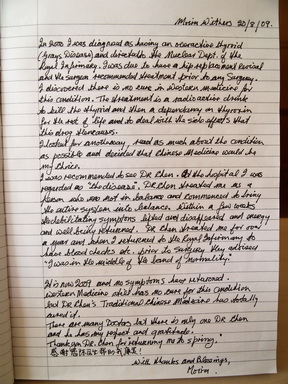 Morim Withers 20/8/09.
In 2002 I was diagnosed as having an overactive thyroid
(Graves Disease) and directed to the Nuclear Dept. of the
Royal Infirmary. I was due to have a hip replacement revival
and the surgeon recommended treatment prior to any surgery.
I discovered there is no cure in Western Medicine for
this condition. The treatment is a radioactive drink
to kill the thyroid and then a dependency on thyroxin
for the rest of life and to deal with the side effects that
this drug produces.
I looked for another way, read as much about the condition
as possible and decided that Chinese Medicine would be
my choice.
I was recommended to see Dr Chen. At the hospital I was
regarded as "the disease". Dr Chen treated me as a
person who was not in balance and commenced to bring
the entire system into balance. Within a few weeks
the debilitating symptoms lifted and disappeared and energy
and well being returned. Dr Chen treated me for over
a year and when I returned to the Royal Infirmary to
have blood checks etc. prior to surgery they advised
"I was in the middle of the band of normality".
It is now 2009 and no symptoms have returned.
Western Medicine still has no cure for this condition
but Dr Chen's Traditional Chinese Medicine has totally
cured it.
There are many Doctors but there is only one Dr Chen
and he has my respect and gratitude.
Thank you Dr. Chen for returning me to
With thanks and Blessings,
Morim